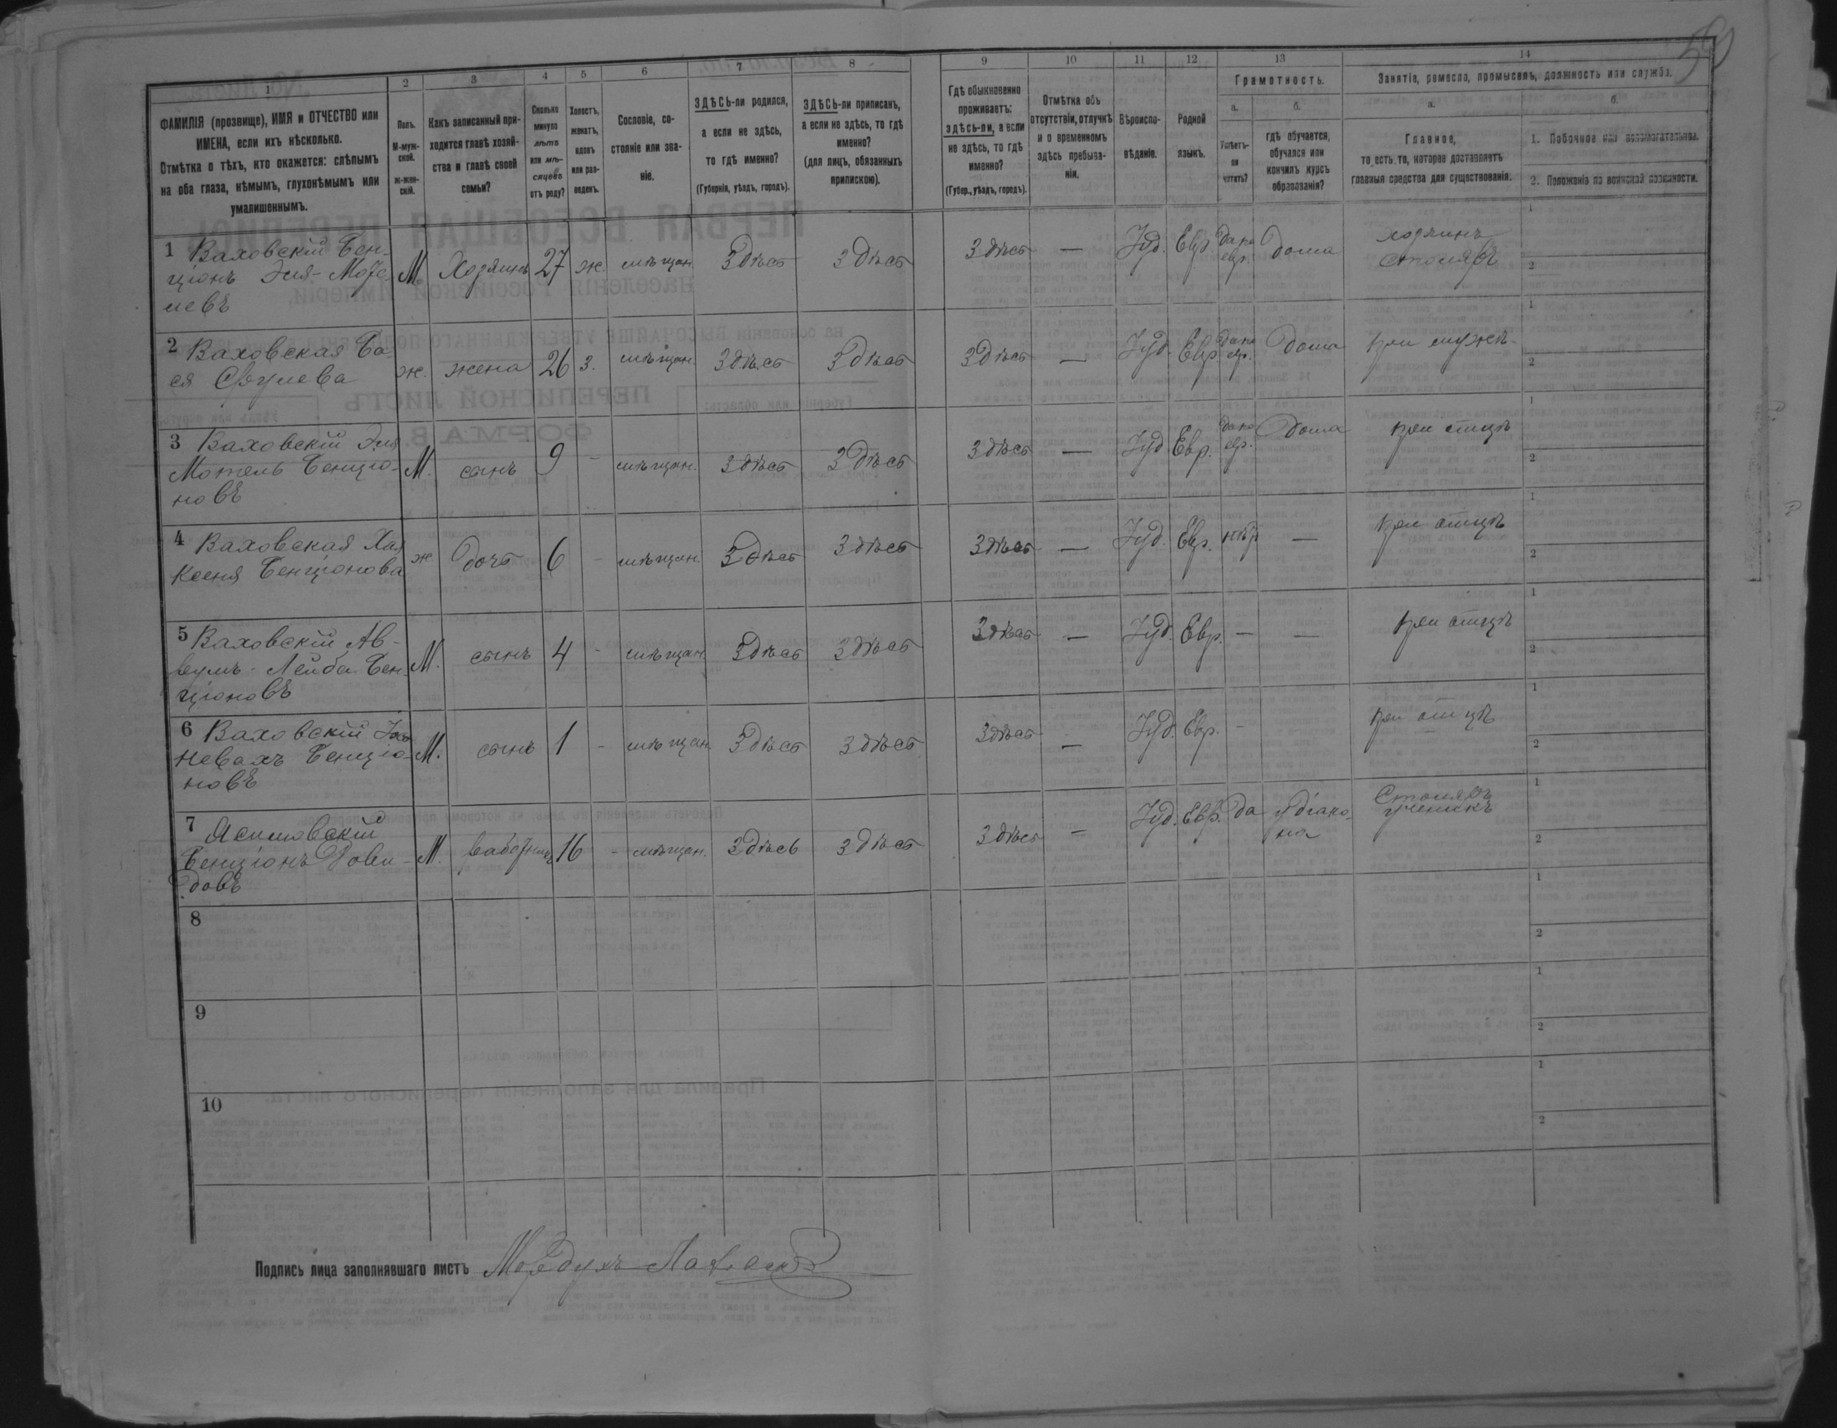 1 2 3 4 5 6 7 8 9 10 11 12 13 14
ФАМИЛІЯ (прозвище), ИМЯ и ОТЧЕСТВО или
ИМЕНА, если ихъ нѣсколько.
Отмѣтка о тѣхъ, кто окажется: слѣпымъ
на оба глаза, нѣмымъ, глухонѣмымъ или
умалишеннымъ.
Полъ.
М-муж-
ской.
Ж-жен-
скій.
Какъ записанный при-
ходится главѣ хозяй-
ства и главѣ своей
семьи?
Сколько
минуло
лѣтъ
или мѣ-
сяцевъ
отъ роду?
Холостъ,
женатъ,
вдовъ
или раз-
веденъ.
Сословіе, со-
стояніе или зва-
ніе.
ЗДѢСЬ-ли родился,
а если не здѣсь,
то гдѣ именно?
(Губернія, уѣздъ, городъ).
ЗДѢСЬ-ли приписанъ,
а если не здѣсь, то гдѣ
именно?
(для лицъ, обязанныхъ
припискою).
Гдѣ обыкновенно
проживаетъ:
здѣсь-ли, а если
не здѣсь, то гдѣ
именно?
(Губер., уѣздъ, городъ).
Отмѣтка объ
отсутствіи, отлучкѣ
и о временномъ
здѣсь пребыва-
ніи.
Вѣроиспо-
вѣданіе.
Родной
языкъ.
Грамотность.
а.
Умѣетъ-
ли
читать?
б.
гдѣ обучается,
обучался или
кончилъ курсъ
образованія?
Занятіе, ремесло, промыселъ, должность или служба.
а.
Главное,
то есть то, которое доставляетъ
главныя средства для существованія.
б.
1. Побочное или вспомогательное.
2. Положеніе по воинской повинности.
1 Ваховскій Бен-
ціонъ
М. Хозяинъ 27 ж. мѣщан. Здѣсь Здѣсь Здѣсь — Іуд. Евр. да по евр. дома хозяинъ столяръ
2 Ваховская Ба
ся
ж. жена 26 з. мѣщан. Здѣсь Здѣсь Здѣсь — Іуд. Евр. да по евр. дома при мужѣ
3 Ваховскій
Мотель Бенціо-
новъ
М. сынъ 9 - мѣщан. Здѣсь Здѣсь Здѣсь — Іуд. Евр. да по евр. дома при отцѣ
4 Ваховская Хая
Ксеня Бенціонова
ж дочь 6 - мѣщан. Здѣсь Здѣсь Здѣсь — Іуд. Евр. нѣт — при отцѣ
5 Ваховскій Ав-
Лейба Бен-
ціоновъ
М. сынъ 4 - мѣщан. Здѣсь Здѣсь Здѣсь — Іуд. Евр. — — при отцѣ
6 Ваховскій
Бенціо-
новъ
М. сынъ 1 - мѣщан. Здѣсь Здѣсь Здѣсь — Іуд. Евр. - при отцѣ
7
Бенціонъ Дови-
довъ
М. 16 - мѣщан. Здѣсь Здѣсь Здѣсь — Іуд. Евр. да столяръ ученикъ
8
9
10
Подпись лица заполнявшаго листъ Мордухъ